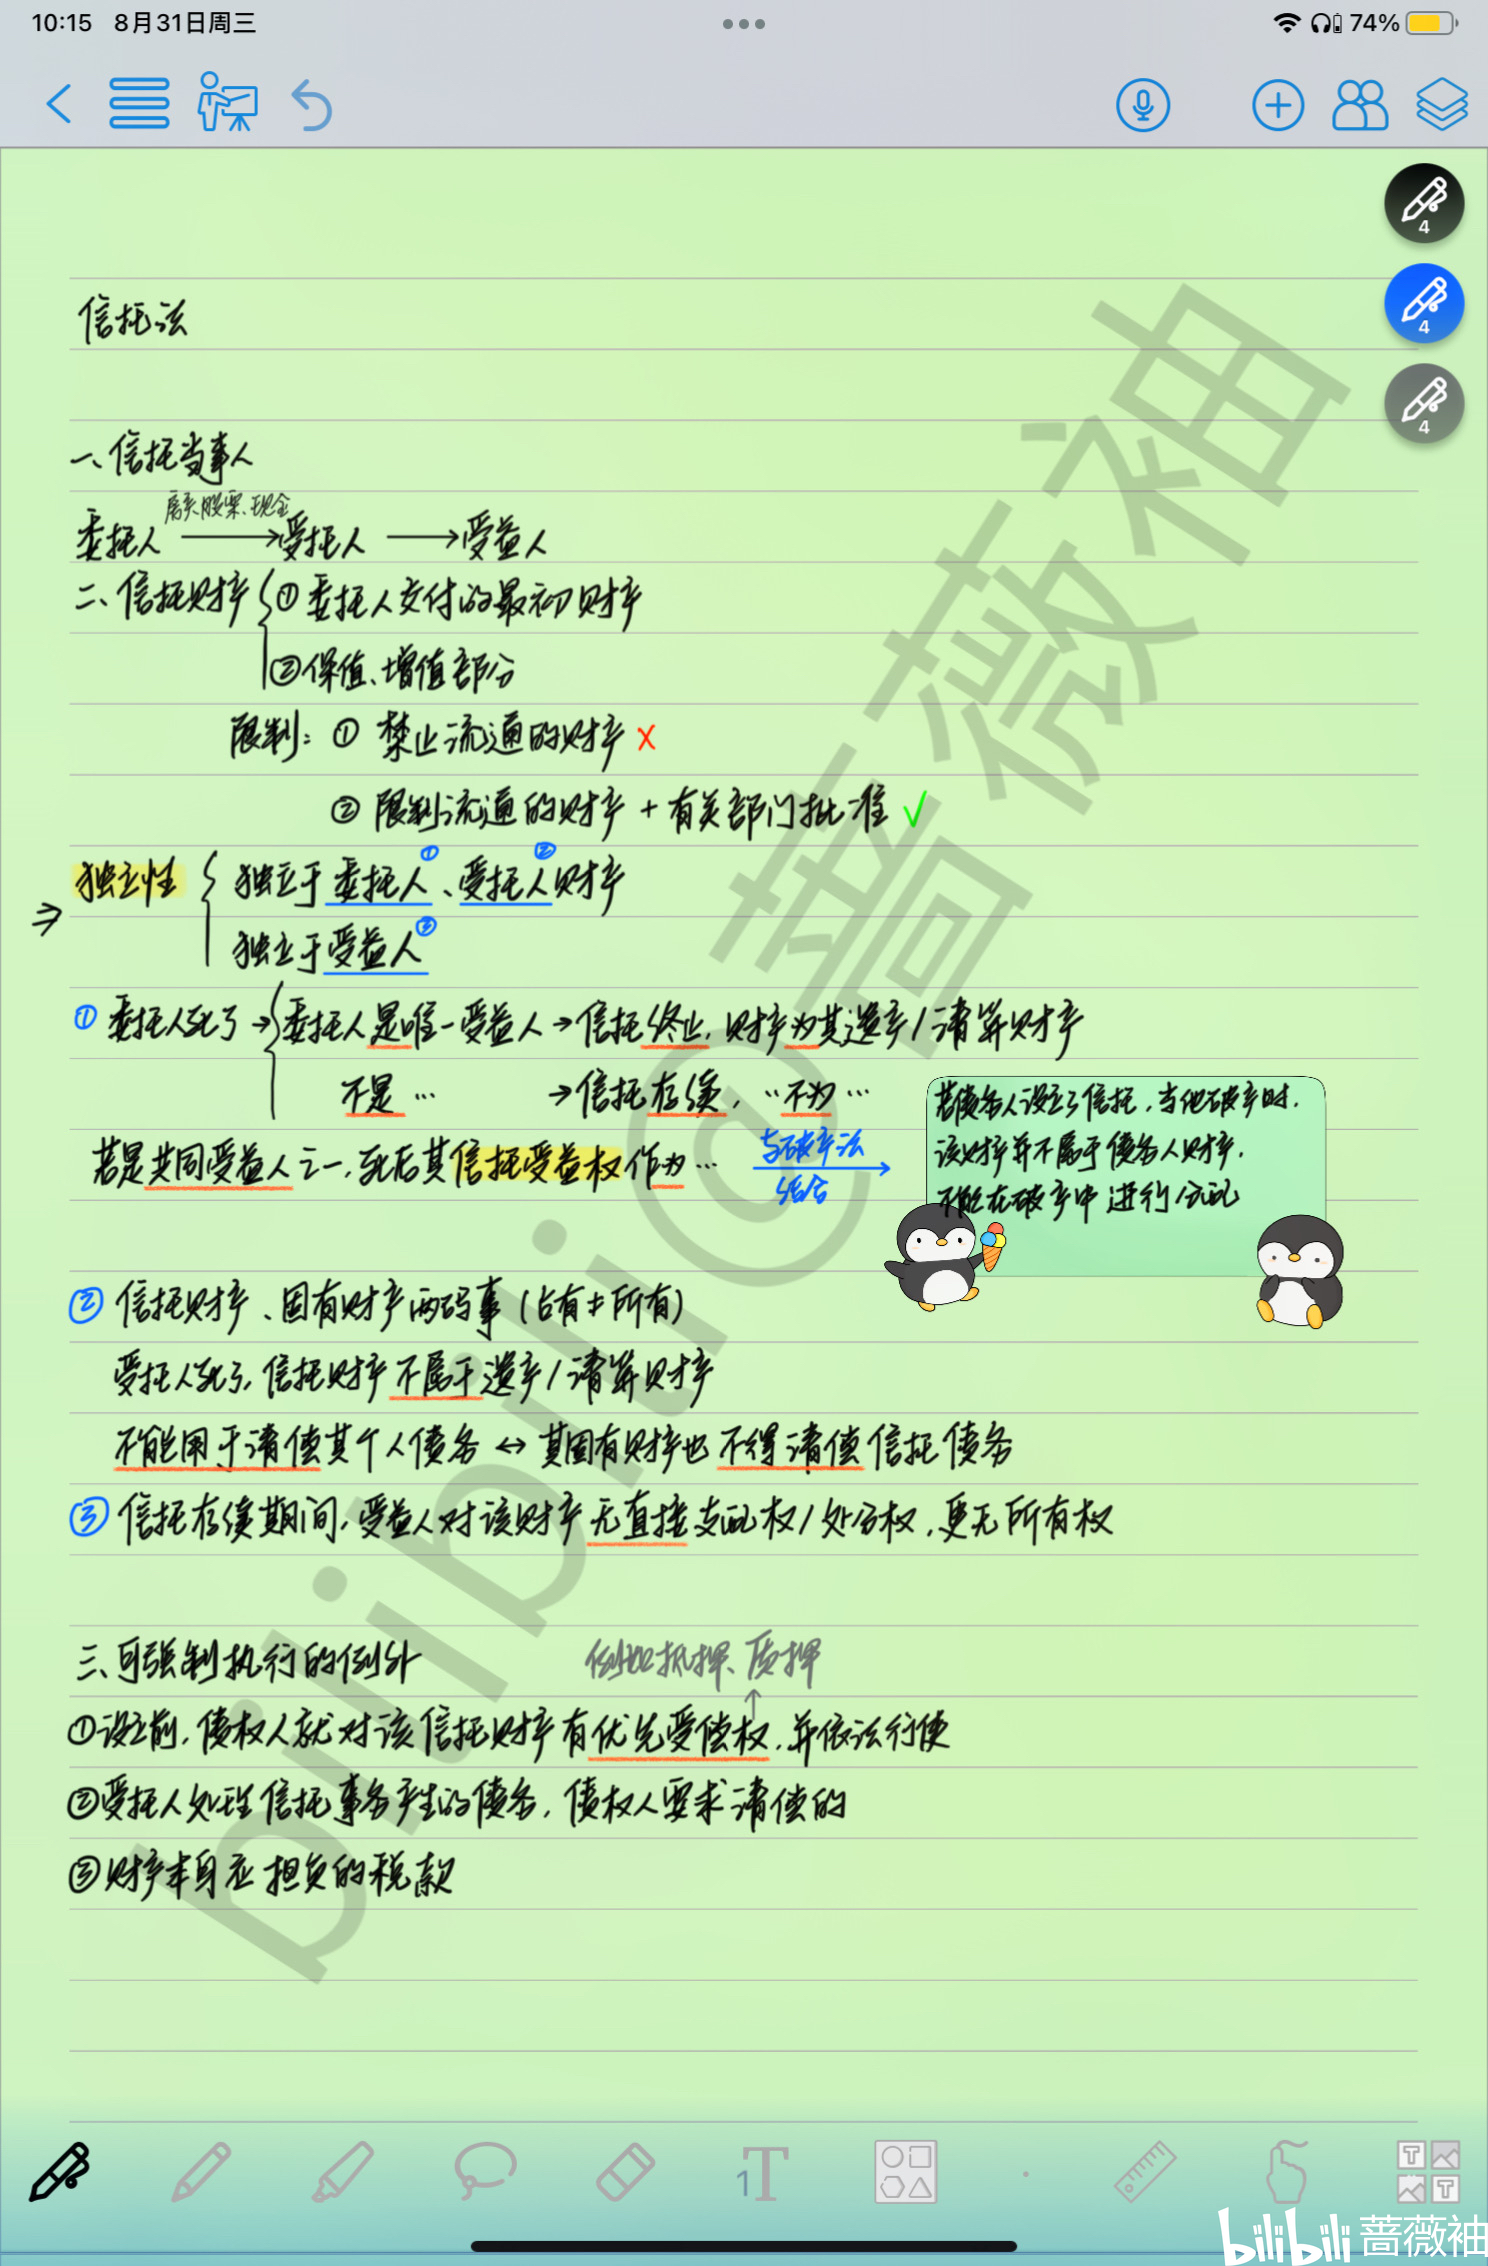 10:15 8月31日周三
74%
4
4
4
信托法
一、信托当事人
房子、股票、现金
委托人 → 受托人 → 受益人
二、信托财产 ①委托人交付的最初财产
②保值、增值部分
限制：① 禁止流通的财产 ×
② 限制流通的财产 + 有关部门批准 √
⇒ 独立性 独立于委托人①、受托人②财产
独立于受益人③
① 委托人死了 → 委托人是唯一受益人 → 信托终止，财产为其遗产/清算财产
不是… → 信托存续，…不为…
若是共同受益人之一，死后其信托受益权作为… 与破产法结合 →
若债务人设立了信托，当他破产时，
该财产并不属于债务人财产，
不能在破产中进行分配
② 信托财产、固有财产两码事（占有≠所有）
受托人死了，信托财产不属于遗产/清算财产
不能用于清偿其个人债务 ↔ 其固有财产也不得清偿信托债务
③ 信托存续期间，受益人对该财产无直接支配权/处分权，更无所有权
三、可强制执行的例外 例如抵押、质押
↑
①设立前，债权人就对该信托财产有优先受偿权，并依法行使
②受托人处理信托事务产生的债务，债权人要求清偿的
③财产本身应担负的税款
bilibili@蔷薇袖
1T
T
T
bilibili 蔷薇袖